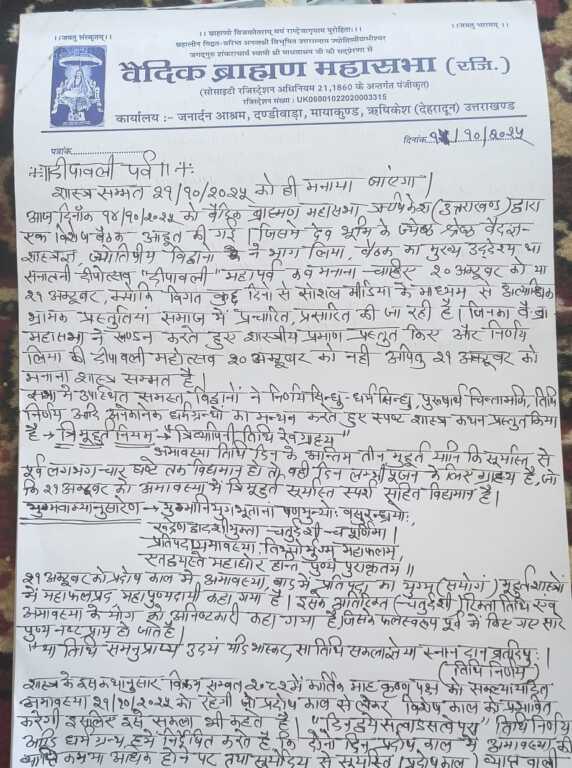 ।।जयतु संस्कृतम्।।
।। ब्राह्मणो विजयतेतराम् वयं राष्ट्रे जागृयाम पुरोहिताः।।
।।जयतु भारतम् ।।
जगद्गुरु शंकराचार्य स्वामी श्री माधवाश्रम जी की सद्प्रेरणा से
वैदिक ब्राह्मण महासभा (रजि.)
(सोसाइटी रजिस्ट्रेशन अधिनियम 21,1860 के अन्तर्गत पंजीकृत)
रजिस्ट्रेशन संख्या : UK06001022020003315
कार्यालय :- जनार्दन आश्रम, दण्डीवाड़ा, मायाकुण्ड, ऋषिकेश (देहरादून) उत्तराखण्ड
पत्रांक
दिनांक 14/१०/२०२५
दीपावली पर्व
शास्त्र सम्मत २१/१०/२०२५ को ही मनाया जाएगा।
आज दिनाँक १४/१०/२०२५ को वैदिक ब्राह्मण महासभा ऋषिकेश (उत्तराखण्ड) द्वारा
एक विशेष बैठक आहूत की गई। जिसमें देव भूमि के ज्येष्ठ श्रेष्ठ वैदज्ञ-
शास्त्रज्ञ, ज्योतिषीय विद्वानों ने भाग लिया, बैठक का मुख्य उद्देश्य था
सनातनी दीपोत्सव "दीपावली" महापर्व कब मनाना चाहिए २० अक्टूबर को या
२१ अक्टूबर, क्योंकि विगत कुछ दिनों से सोशल मीडिया के माध्यम से अत्याधिक
भ्रामक प्रस्तुतियां समाज में प्रचारित, प्रसारित की जा रही है। जिनका वै. ब्रा
महासभा ने खण्डन करते हुए शास्त्रीय प्रमाण प्रस्तुत किए और निर्णय
लिया की दीपावली महोत्सव २० अक्टूबर को नहीं अपितु २१ अक्टूबर को
मनाना शास्त्र सम्मत है।
सभा में उपस्थित समस्त विद्वानों ने निर्णय सिन्धु-धर्म सिन्धु, पुरुषार्थ चिन्तामणि, तिथि
निर्णय आदि अनेकानेक धर्मग्रन्थों का मन्थन करते हुए स्पष्ट शास्त्र कथन प्रस्तुत किया
है → त्रिमुहूर्त नियम → "त्रिव्यापिनी तिथि रेव ग्राह्य"
अमावस्या तिथि दिन के अन्तिम तीन मुहूर्त यानि कि सूर्यास्त से
पूर्व लगभग चार घण्टे तक विद्यमान हो तो वही दिन लक्ष्मी पूजन के लिए ग्राह्य है, जो
कि २१ अक्टूबर को अमावस्या में त्रिमुहूर्त सूर्यास्त स्पर्श सहित विद्यमान है।
युग्मवाक्यानुसारेण → युग्माग्नियुगभूतानां षण्मुन्योः वसुरन्ध्रयोः,
रुद्रेण द्वादशीयुक्ता चतुर्दशी च पूर्णिमा।
प्रतिपदाप्यमावस्या, तिथ्योर्युग्मं महाफलम्,
एतद्व्यस्तं महाघोरं हन्ति पुण्यं पुराकृतम्॥
२१ अक्टूबर को प्रदोष काल में, अमावस्या, बाद में प्रतिपदा का युग्म (संयोग) मुहूर्त शास्त्रों
में महाफलप्रद महापुण्यदायी कहा गया है। इसके अतिरिक्त चतुर्दशी रिक्ता तिथि एवं
अमावस्या के योग को अनिष्टकारी कहा गया है जिसके फलस्वरूप पूर्व में किए गए सारे
पुण्य नष्ट प्राय हो जाते है।
"या तिथि समनुप्राप्य उदयं याति भास्कर, सा तिथि सकला ज्ञेया स्नान दान व्रतादिषु।
(तिथि निर्णय)
शास्त्र के इस कथानुसार विक्रम सम्वत् २०८२ में कार्तिक माह कृष्ण पक्ष की
अमावस्या २१/१०/२०२५ को रहेगी जो प्रदोष काल से लेकर निशेष काल को प्रभावित
करेगी इसलिए इसे सकला भी कहते हैं। तिथि निर्णय
आदि धर्म ग्रन्थ हमें निर्देशित करते है कि दोनों दिन प्रदोष काल में अमावस्या की
व्याप्ति कम या अधिक होने पर तथा सूर्योदय से सूर्यास्त (प्रदोषकाल) व्याप्त वाली